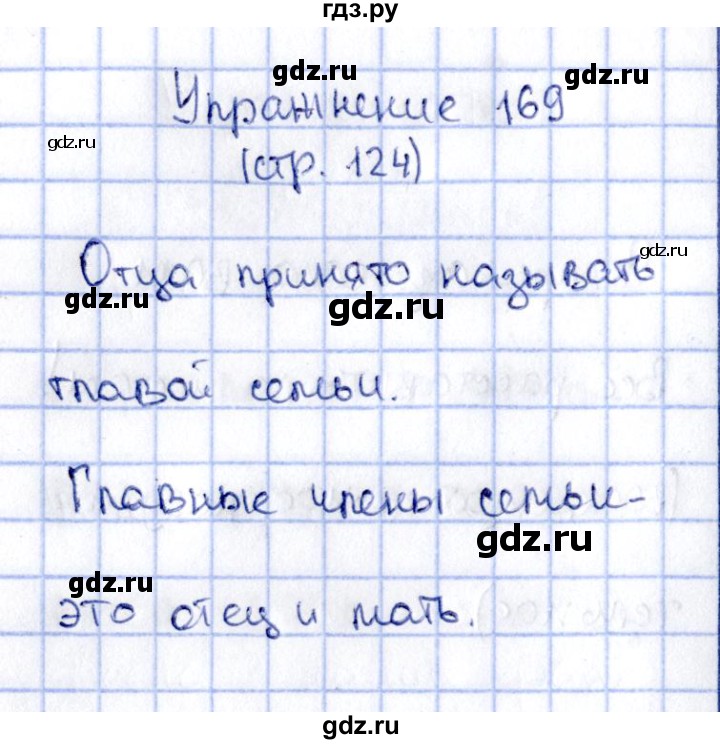 гдз.ру
gdz.ru
gdz.ru
Упражнение 169
gdz.ru
(стр. 124)
gdz.ru
Отца принято называть
gdz.ru
gdz.ru
главой семьи.
Главные члены семьи-
gdz.ru
gdz.ru
это отец и мать.
gdz.ru